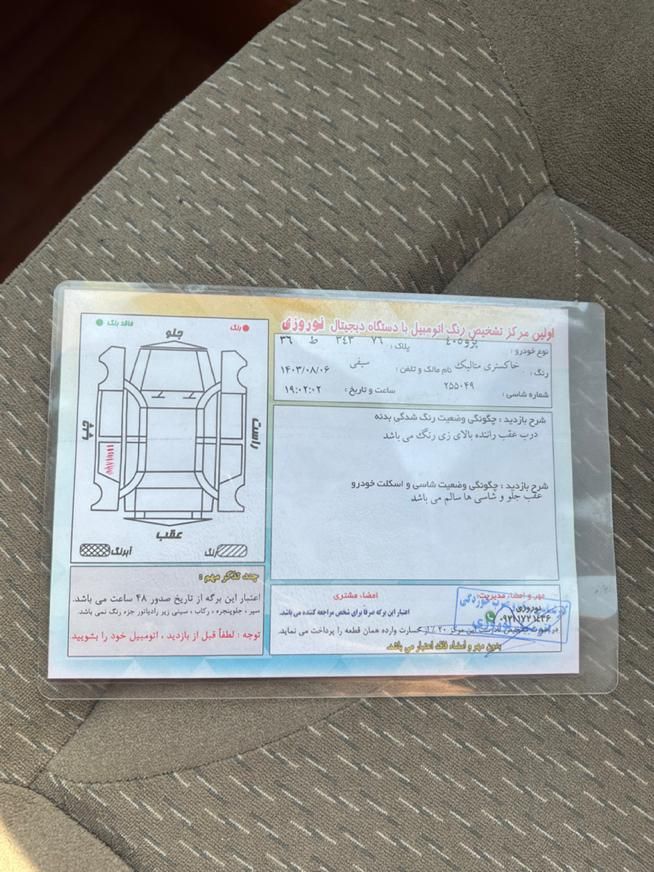 اولین مرکز تشخیص رنگ اتومبیل با دستگاه دیجیتال نوروزی
نوع خودرو : پژو ۴۰۵ پلاک : ۷۶ ۳۴۳ ط ۳۶
رنگ : خاکستری متالیک نام مالک و تلفن : سیفی ۱۴۰۳/۰۸/۰۶
شماره شاسی : ۲۵۵۰۴۹ ساعت و تاریخ : ۱۹:۰۲:۰۲
شرح بازدید : چگونگی وضعیت رنگ شدگی بدنه
درب عقب راننده بالای زی رنگ می باشد
شرح بازدید : چگونگی وضعیت شاسی و اسکلت خودرو
عقب جلو و شاسی ها سالم می باشد
مهر و امضاء مدیریت:
امضاء مشتری
نوروزی:
۰۹۲۱۱۷۲۱۴۳۶
اعتبار این برگه صرفاً برای شخص مراجعه کننده می باشد.
این مرکز ۲۰ ٪ از خسارت وارده همان قطعه را پرداخت می نماید.
بدون مهر و امضاء فاقد اعتبار می باشد.
رنگ
فاقد رنگ
جلو
راست
چپ
عقب
رنگ
آبرنگ
چند تذکر مهم :
اعتبار این برگه از تاریخ صدور ۴۸ ساعت می باشد.
سپر ، جلوپنجره ، رکاب ، سینی زیر رادیاتور جزء رنگ نمی باشد.
توجه : لطفاً قبل از بازدید ، اتومبیل خود را بشویید.